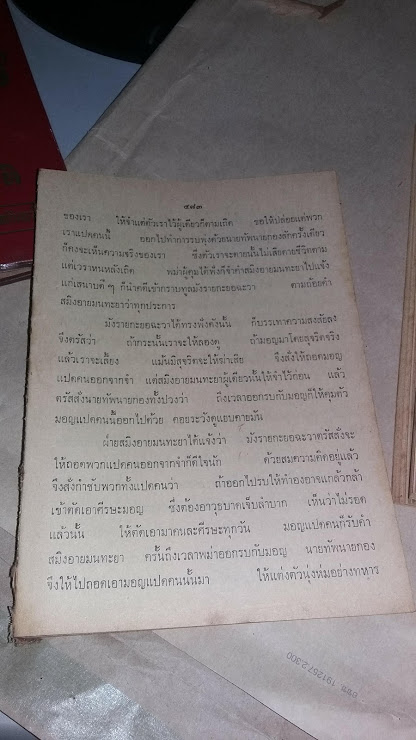 ๔๗๓
ของเรา ให้จำแต่ตัวเราไว้ผู้เดียวก็ตามเถิด ขอให้ปล่อยแต่พวก
เราแปดคนนี้ ออกไปทำการรบพุ่งด้วยนายทัพนายกองสักครั้งเดียว
ก็คงจะเห็นความจริงของเรา ซึ่งตัวเราจะตายนั้นไม่เสียดายชีวิตตาม
แต่เวราหนหลังเถิด พม่าผู้คุมได้ฟังก็จำคำสมิงอายมนทะยาไปแจ้ง
แก่เสนาบดี ๆ ก็นำคดีเข้ากราบทูลมังรายกะยอฉะวา ตามถ้อยคำ
สมิงอายมนทะยาว่าทุกประการ
มังรายกะยอฉะวาได้ทรงฟังดังนั้น ก็บรรเทาความสงสัยลง
จึงตรัสว่า ถ้ากระนั้นเราจะให้ลองดู ถ้ามอญมาโดยสุจริตจริง
แล้วเราจะเลี้ยง แม้นมิสุจริตจะให้ฆ่าเสีย จึงสั่งให้ถอดมอญ
แปดคนออกจากจำ แต่สมิงอายมนทะยาผู้เดียวนั้นให้จำไว้ก่อน แล้ว
ตรัสสั่งนายทัพนายกองทั้งปวงว่า ถึงเวลาออกรบกับมอญก็ให้คุมตัว
มอญแปดคนนี้ออกไปด้วย คอยระวังดูแยบคายมัน
ฝ่ายสมิงอายมนทะยาได้แจ้งว่า มังรายกะยอฉะวาตรัสสั่งจะ
ให้ถอดพวกแปดคนออกจากจำก็ดีใจนัก ด้วยสมความคิดอยู่แล้ว
จึงสั่งกำชับพวกทั้งแปดคนว่า ถ้าออกไปรบให้ทำองอาจแกล้วกล้า
เข้าตัดเอาศีรษะมอญ ซึ่งต้องอาวุธบาดเจ็บลำบาก เห็นว่าไม่รอด
แล้วนั้น ให้ตัดเอามาคนละศีรษะทุกวัน มอญแปดคนก็รับคำ
สมิงอายมนทะยา ครั้นถึงเวลาพม่าออกรบกับมอญ นายทัพนายกอง
จึงให้ไปถอดเอามอญแปดคนนั้นมา ให้แต่งตัวนุ่งห่มอย่างทหาร